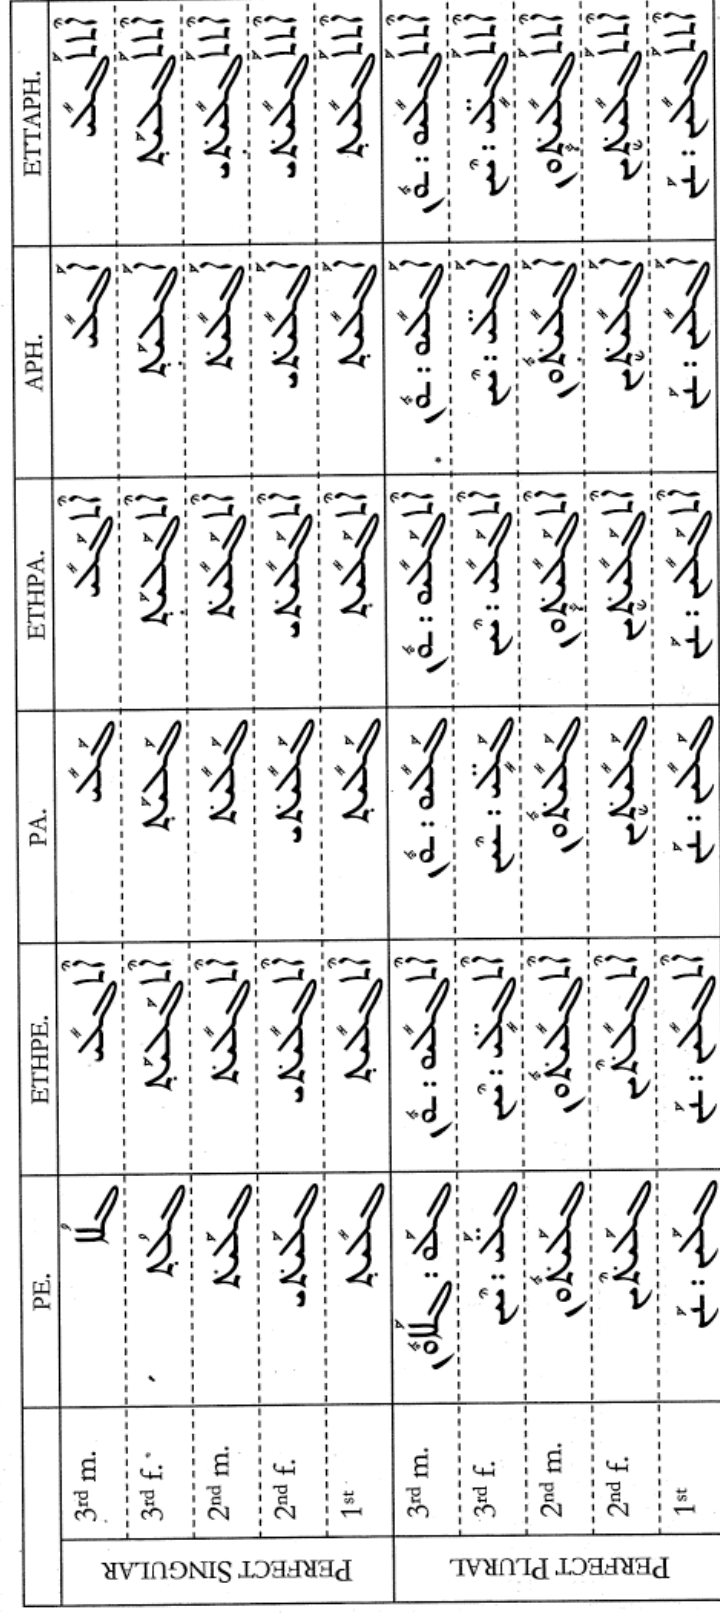 PE. ETHPE. PA. ETHPA. APH. ETTAPH.
PERFECT SINGULAR
3rd m. ܓܠܳܐ ܐܶܬܓܠܺܝ ܓܰܠܺܝ ܐܶܬܓܰܠܺܝ ܐܰܓܠܺܝ ܐܶܬܬܰܓܠܺܝ
3rd f. ܓܠܳܬ݂ ܐܶܬܓܰܠܝܰܬ݂ ܓܰܠܝܰܬ݂ ܐܶܬܓܰܠܝܰܬ݂ ܐܰܓܠܝܰܬ݂ ܐܶܬܬܰܓܠܝܰܬ݂
2nd m. ܓܠܰܝܬ݁ ܐܶܬܓܠܺܝܬ݁ ܓܰܠܺܝܬ݁ ܐܶܬܓܰܠܺܝܬ݁ ܐܰܓܠܺܝܬ݁ ܐܶܬܬܰܓܠܺܝܬ݁
2nd f. ܓܠܰܝܬ݁ܝ ܐܶܬܓܠܺܝܬ݁ܝ ܓܰܠܺܝܬ݁ܝ ܐܶܬܓܰܠܺܝܬ݁ܝ ܐܰܓܠܺܝܬ݁ܝ ܐܶܬܬܰܓܠܺܝܬ݁ܝ
1st ܓܠܺܝܬ݂ ܐܶܬܓܠܺܝܬ݂ ܓܰܠܺܝܬ݂ ܐܶܬܓܰܠܺܝܬ݂ ܐܰܓܠܺܝܬ݂ ܐܶܬܬܰܓܠܺܝܬ݂
PERFECT PLURAL
3rd m. ܓܠܰܘ : ܓܠܰܐܘܽܢ ܐܶܬܓܠܺܝܘ : ܝܘܽܢ ܓܰܠܺܝܘ : ܝܘܽܢ ܐܶܬܓܰܠܺܝܘ : ܝܘܽܢ ܐܰܓܠܺܝܘ : ܝܘܽܢ ܐܶܬܬܰܓܠܺܝܘ : ܝܘܽܢ
3rd f. ܓܠܰܝ̈ : ܝܶܢ ܐܶܬܓܠܺܝ̈ : ܝܶܢ ܓܰܠܺܝ̈ : ܝܶܢ ܐܶܬܓܰܠܺܝ : ܝܶܢ ܐܰܓܠܺܝ̈ : ܝܶܢ ܐܶܬܬܰܓܠܺܝ̈ : ܝܶܢ
2nd m. ܓܠܰܝܬ݁ܘܽܢ ܐܶܬܓܠܺܝܬ݁ܘܽܢ ܓܰܠܺܝܬ݁ܘܽܢ ܐܶܬܓܰܠܺܝܬ݁ܘܽܢ ܐܰܓܠܺܝܬ݁ܘܽܢ ܐܶܬܬܰܓܠܺܝܬ݁ܘܽܢ
2nd f. ܓܠܰܝܬ݁ܶܝܢ ܐܶܬܓܠܺܝܬ݁ܶܝܢ ܓܰܠܺܝܬ݁ܶܝܢ ܐܶܬܓܰܠܺܝܬ݁ܶܝܢ ܐܰܓܠܺܝܬ݁ܶܝܢ ܐܶܬܬܰܓܠܺܝܬ݁ܶܝܢ
1st ܓܠܰܝܢ : ܢܰܢ ܐܶܬܓܠܺܝܢ : ܢܰܢ ܓܰܠܺܝܢ : ܢܰܢ ܐܶܬܓܰܠܺܝܢ : ܢܰܢ ܐܰܓܠܺܝܢ : ܢܰܢ ܐܶܬܬܰܓܠܺܝܢ : ܢܰܢ